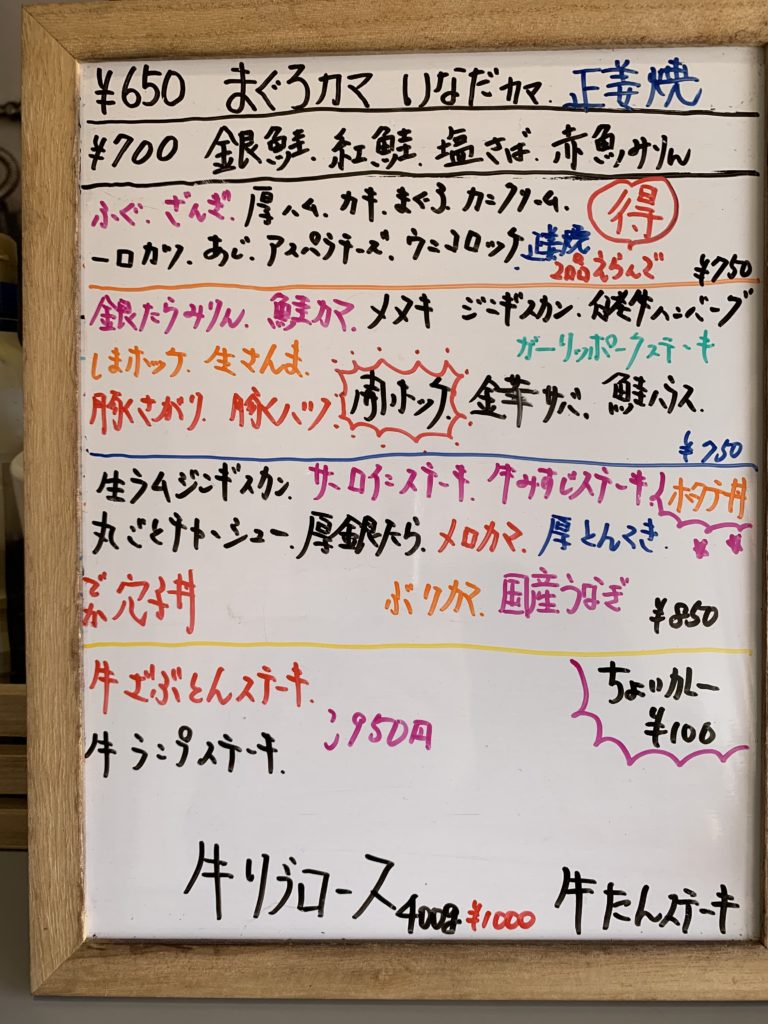 ¥650 まぐろカマ いなだカマ. 正姜焼
¥700 銀鮭. 紅鮭. 塩さば. 赤魚みりん
ふぐ. ざんぎ. 厚ハム. カキ. まぐろ. カニクリーム.
得
一口カツ. あじ. アスパラチーズ. ウニコロッケ
2品えらんで ¥750
銀だらみりん. 鮭カマ. メヌキ ジンギスカン. 牛ハンバーグ
ガーリッポークステーキ
しまホッケ. 生さんま.
豚さがり. 豚ハツ. ホッケ 金華サバ. 鮭ハラス.
¥750
生ラムジンギスカン. サーロインステーキ. 牛みすじステーキ. ホタテ丼
丸ごとチャーシュー. 厚銀たら. メロカマ. 厚とんてき.
でか穴子丼 ぶりカマ. 国産うなぎ ¥850
牛ざぶとんステーキ.
950円
牛ランプステーキ.
ちょいカレー
¥100
牛リブロース 400g. ¥1000 牛たんステーキ